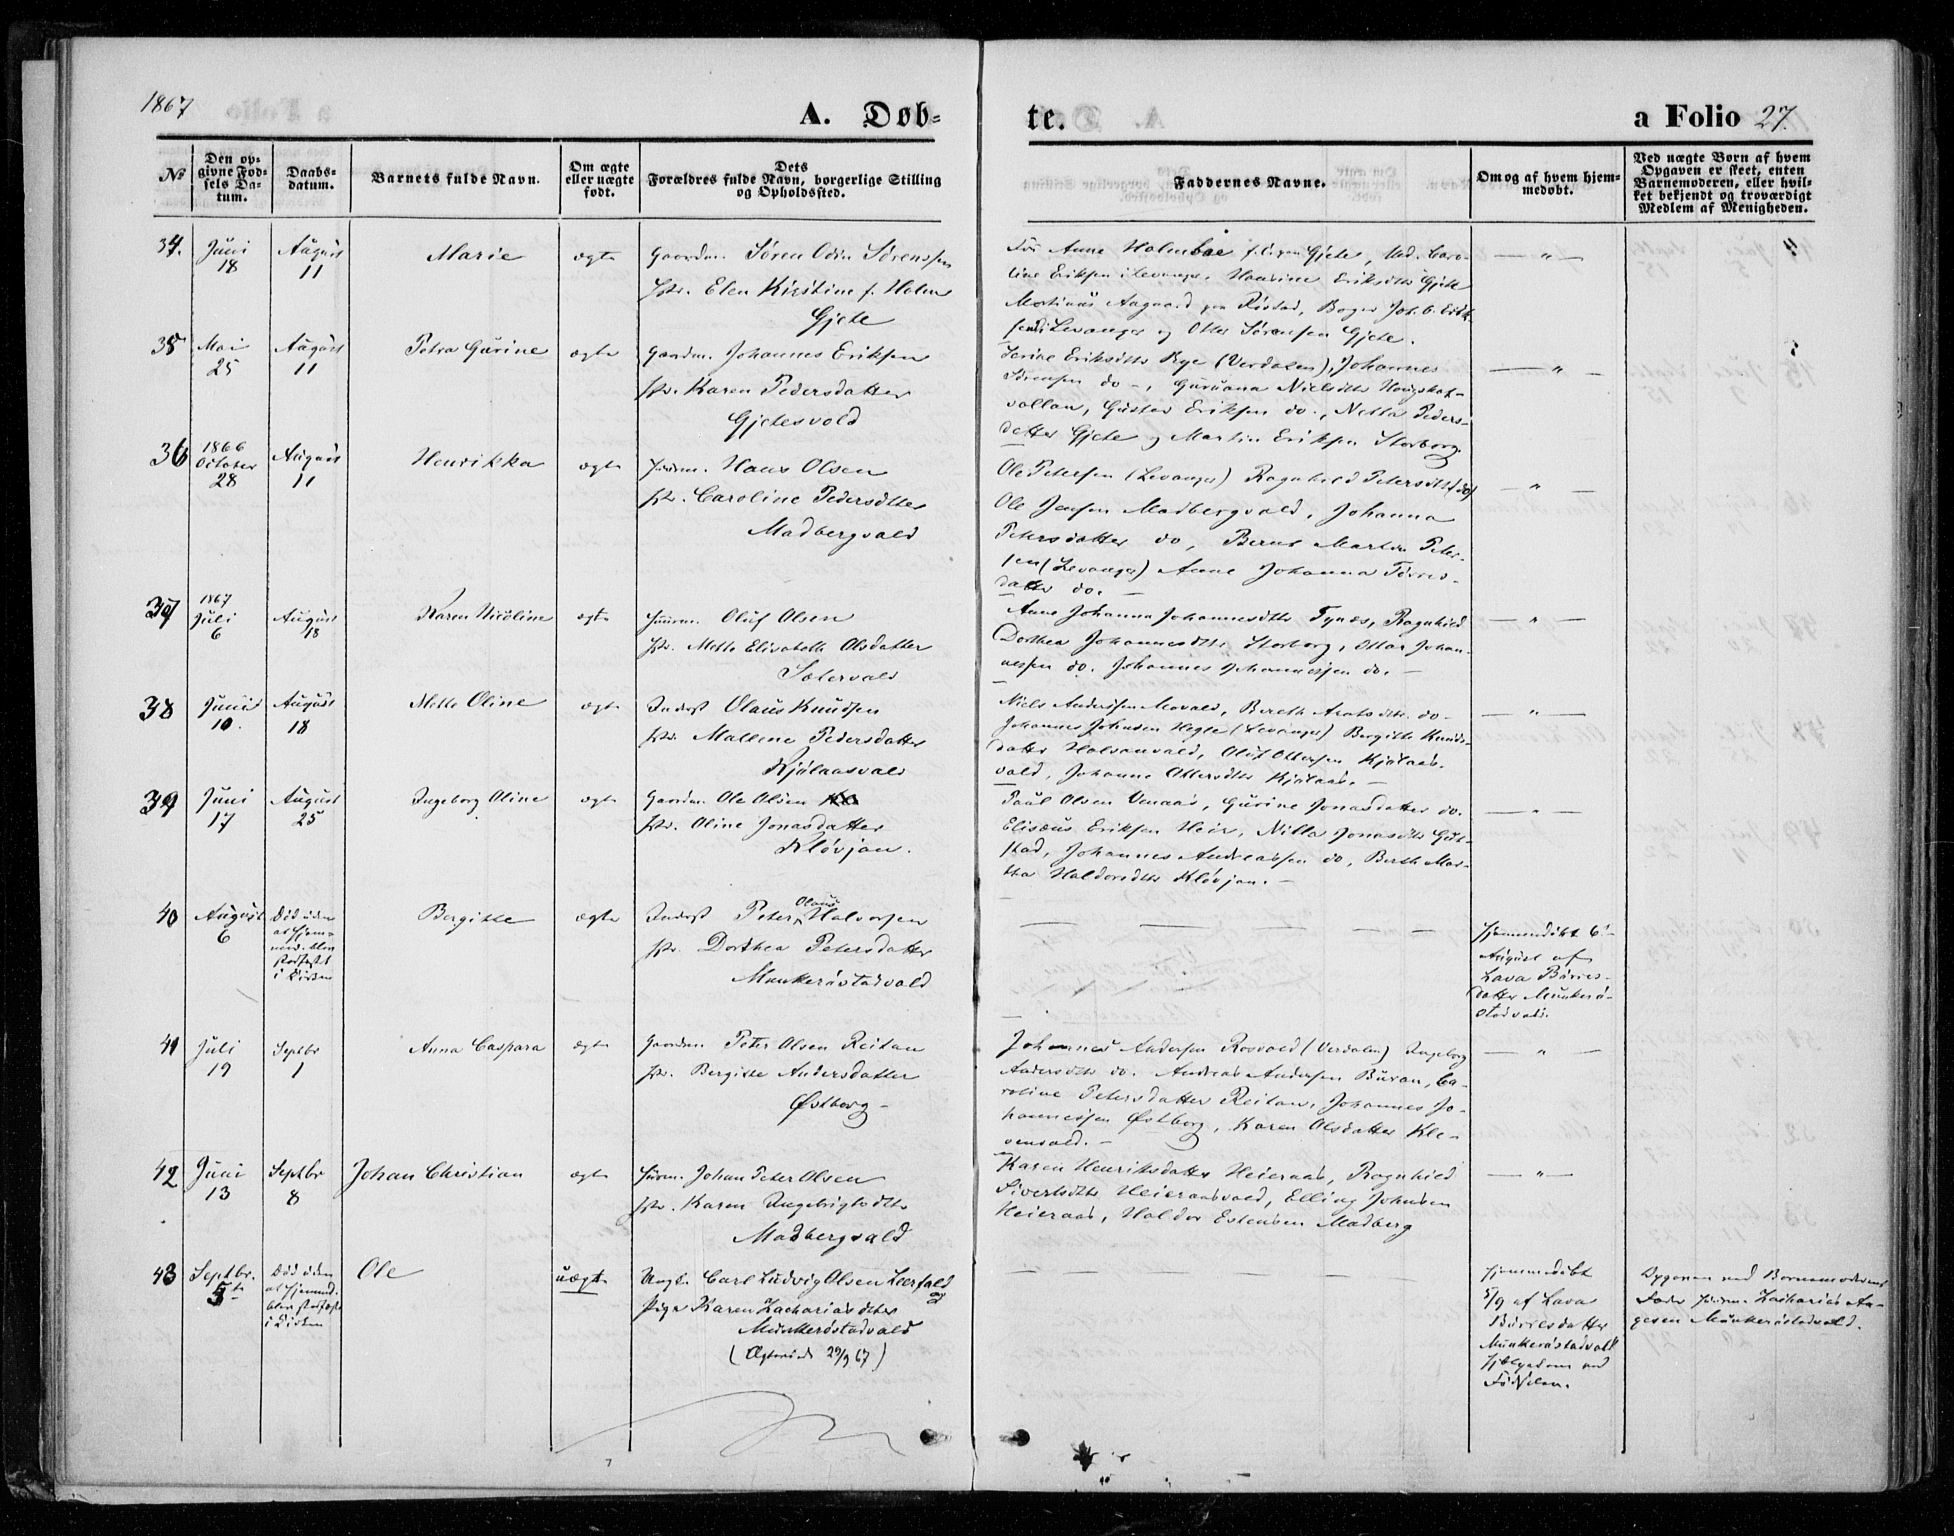 1867
A. Døb-
te.
a Folio 27.
No
Den op-
givne Fød-
sels Da-
tum.
Daabs-
datum.
Barnets fulde Navn.
Om ægte
eller uægte
født.
Dets
Forældres fulde Navn, borgerlige Stilling
og Opholdssted.
Faddernes Navne.
Om og af hvem hjem-
medøbt.
Ved uægte Børn af hvem
Opgaven er skeet, enten
Barnemoderen, eller hvil-
ket bekjendt og troværdigt
Medlem af Menigheden.
34. Juni 18 August 11 Marie ægte Gaardm. Søren Odin Sørensen
Hstr. Elen Kirstine f. Holm
Gjete
Anne Holmboe Gjete, Mad. Caro-
line Eriksen i Levanger, Eriksdtr Gjete
Martinus Aagaard paa Røstad, Bager Joh. E. Erik-
sen i Levanger og Otter Sørensen Gjete.
— " —
35 Mai 25 August 11 Petra Gurine ægte Gaardm. Johannes Eriksen
Hstr. Karen Pedersdatter
Gjetesvold
Serine Eriksdtr Bye (Verdalen), Johannes
Sørensen do -, Guruana Nielsdtr
vollan, Gustav Eriksen do., Netta Peders-
datter Gjete og Martin Eriksen Storborg.
— " —
36 1866 October 28 August 11 Henrikka ægte Huusm. Hans Olsen
Hstr. Caroline Pedersdtter
Madbergvald
Ole Petersen (Levanger) Ragnhild Petersdtr (do)
Ole Jensen Madbergvald, Johanna
Petersdatter do, Bernt Martin Peter-
sen (Levanger) Anne Johanna Tørres-
datter do. -
— " —
37 1867 Juli 6 August 18 Karen Nicoline ægte Huusm. Oluf Olsen
Hstr. Mette Elisabeth Olsdatter
Sætervald
Anne Johanna Johannesdtr Tynes, Ragnhild
Dorthea Johannesdtr Storborg, Ottar Johan-
nessen do. Johannes Johannessen do. -
— " —
38 Juni 10. August 18 Mette Oline ægte Inderst Olaus Knudsen
Hstr. Mallene Pedersdatter
Kjølaasvald
Niels Andersen Movald, Bereth do -
Johannes Johnsen Hegle (Levanger) Bergitte Knuds-
datter Halsanvald, Oluf Ottersen Kjølaas-
vald, Johanne Ottersdtr Kjølaas. -
— " —
39 Juni 17 August 25 Ingeborg Oline ægte Gaardm. Ole Olsen
Hstr. Oline Jonasdatter
Kløvjan.
Paul Olsen Venaas, Gurine Jonasdatter do.
Elisæus Eriksen Heir, Nilla Jonasdtr Gul-
stad, Johannes Andreassen do, Berth Mar-
tha Haldorsdtr Kløvjan. -
— " —
40 August 6 Død uden
at Hjem-
med. blev
stadfæstet
i Kirken Bergitte ægte Inderst Peter Olaus Halvorsen
Hstr. Dorthea Petersdatter
Munkerøstadvald
Hjemmedøbt 6te
August af
Lava Børres-
datter Munkerø-
stadvald.
41 Juli 19 Septbr 1 Anna Caspara ægte Gaardm. Peter Olsen Reitan
Hstr. Bergitte Andersdatter
Østborg -
Johannes Andersen Rosvold (Verdalen) Ingeborg
Andersdtr do. Andreas Andersen Buran, Ca-
roline Petersdatter Reitan, Johannes Jo-
hannessen Østborg, Karen Olsdatter Kle-
venvald. -
— " —
42 Juni 13 Septbr 8 Johan Christian ægte Huusm. Johan Peter Olsen
Hstr. Karen Ingebrigtsdtr
Madbergvald
Karen Henriksdatter Heieraas, Ragnhild
Sivertsdtr Heieraasvald, Elling Johnsen
Heieraas, Haldor Estensen Madberg
— " —
43 Septbr. 5te Død uden
at Hjemmed.
blev stadfæstet
i Kirken Ole uægte Ungk. Carl Ludvig Olsen Leerfald
og
Pige Karen Zachariasdtr
Munkerøstadvald
(Ægteviede 29/9 67)
Hjemmedøbt
5/9 af Lava
Børresdatter
Munkerøstadvald
Hjelpedame ved
Fødselen.
Opgaven ved Barnemoderens
Fader Huusm. Zacharias Aa-
gesen Munkerøstadvald.